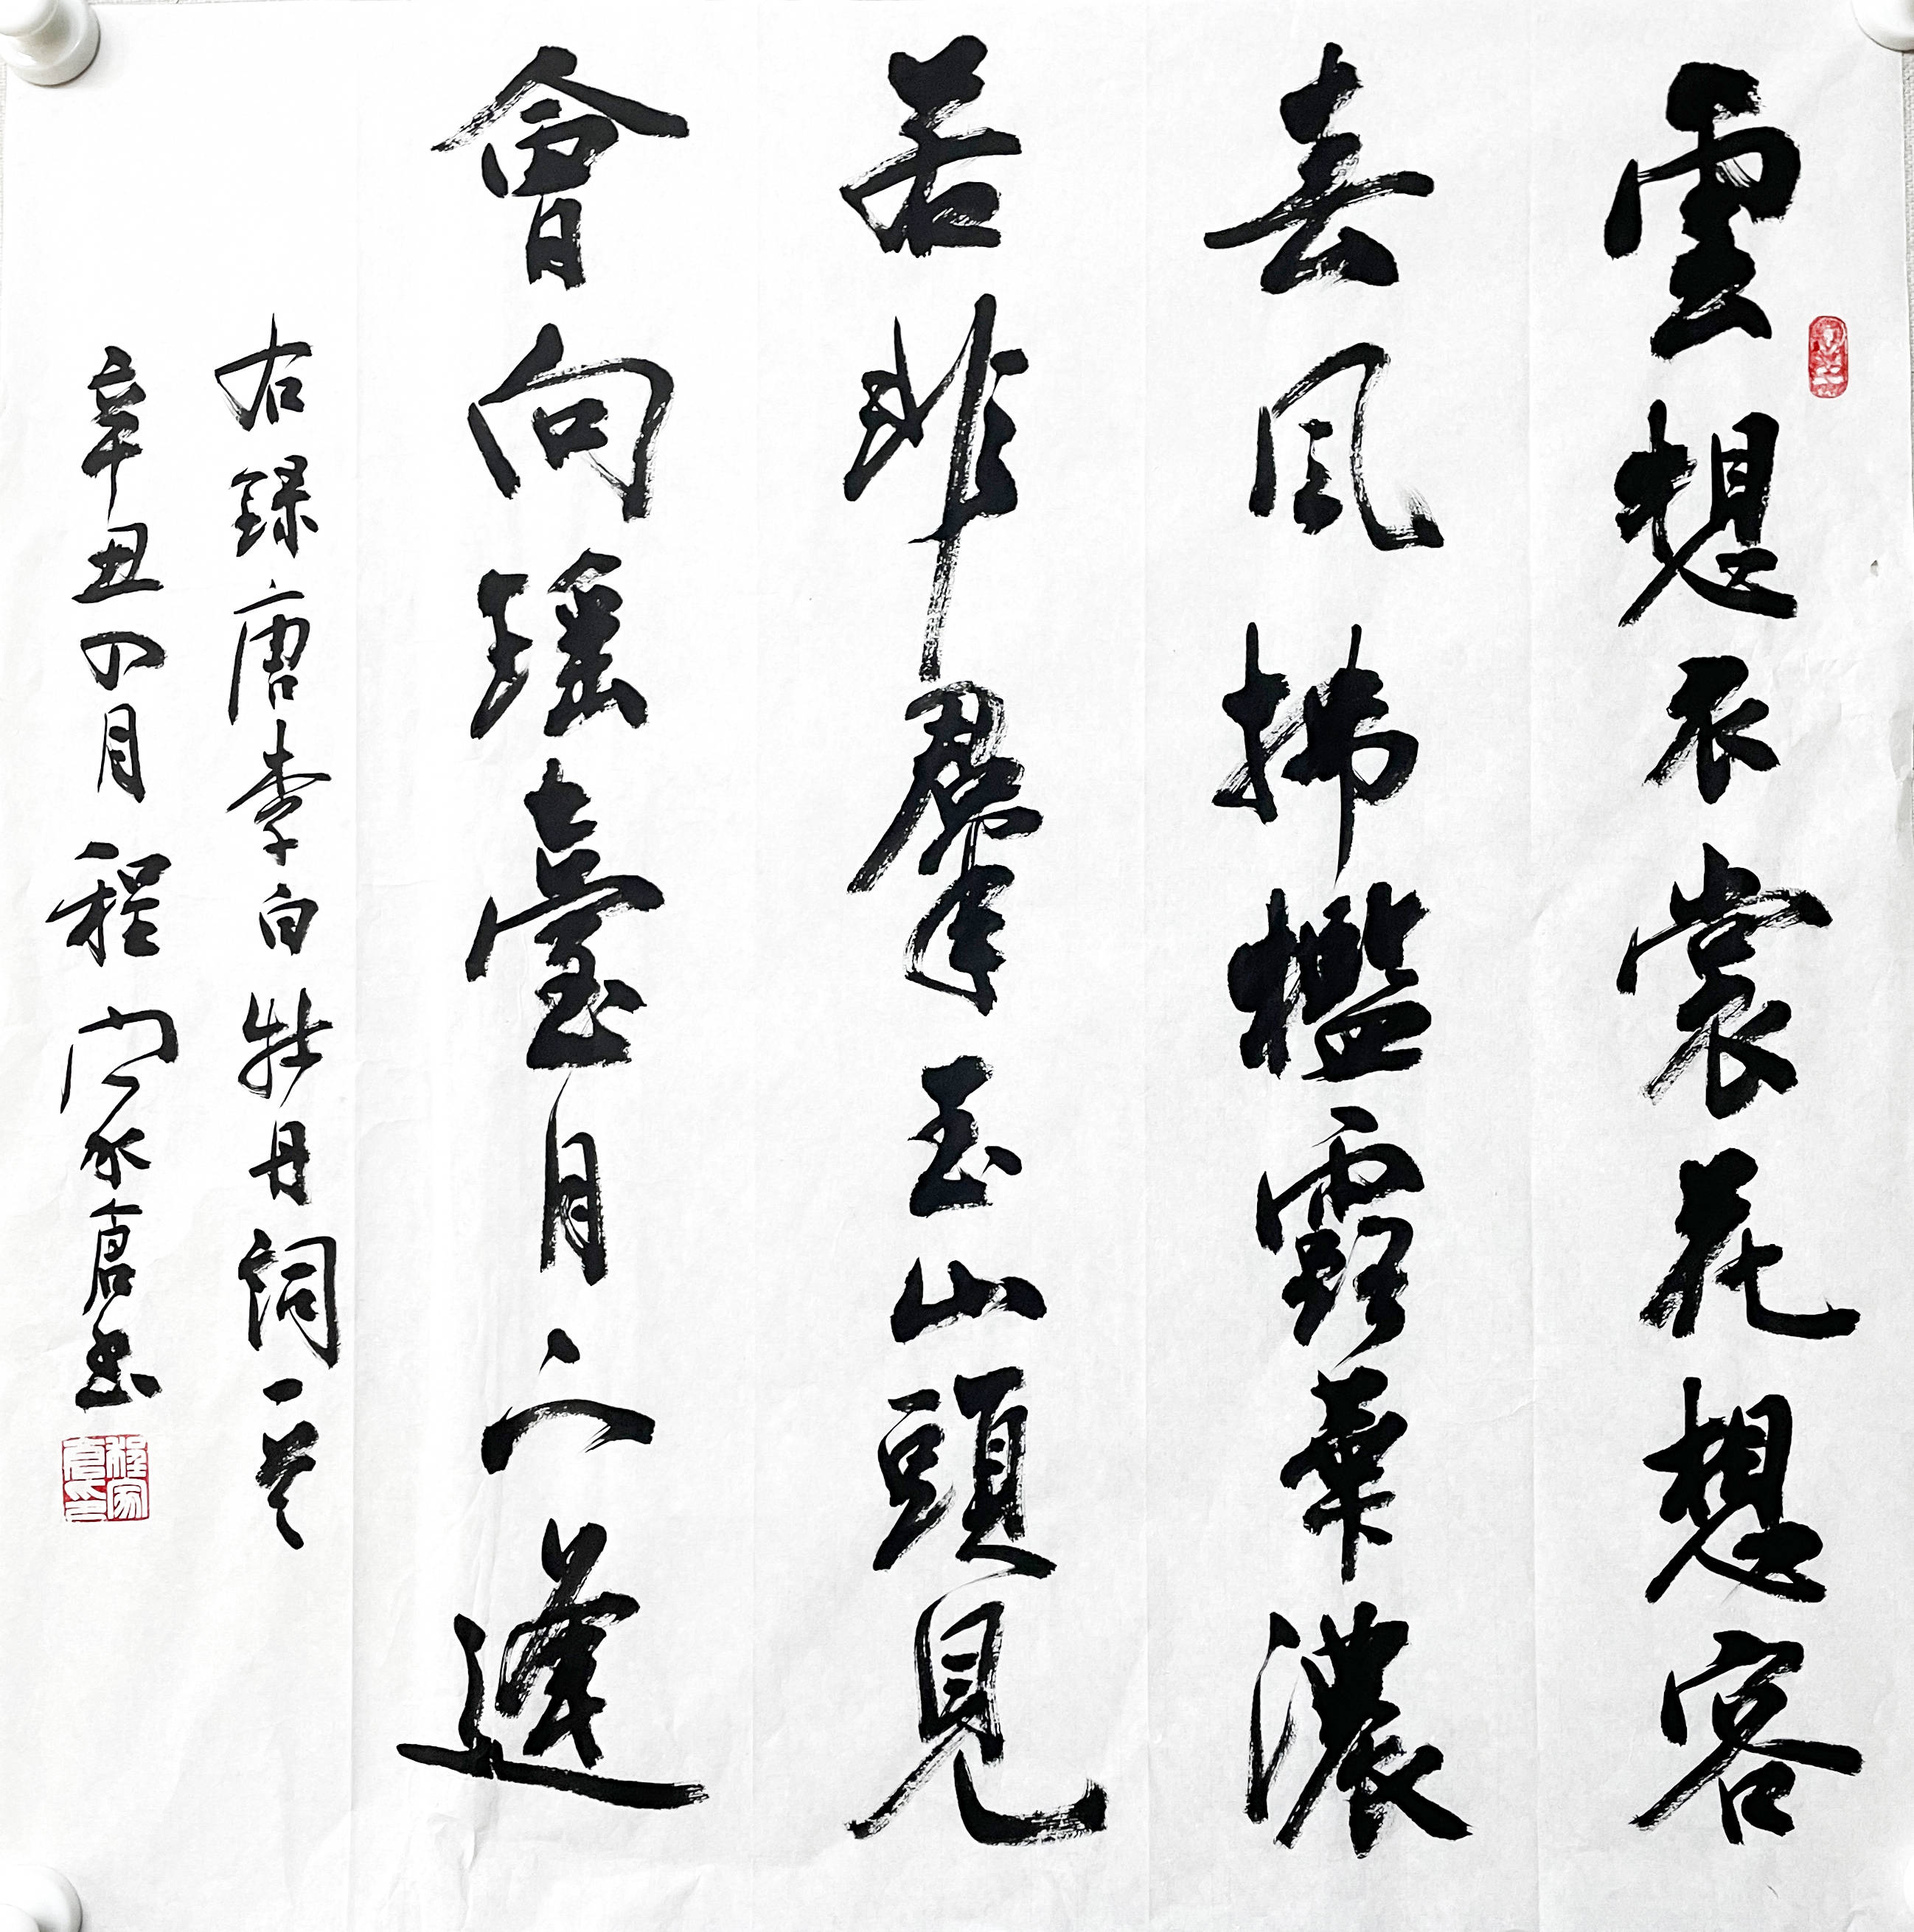 雲想衣裳花想容
春風拂檻露華濃
若非羣玉山頭見
會向瑤臺月下逢
右錄唐李白牡丹詞一首
辛丑四月程家書